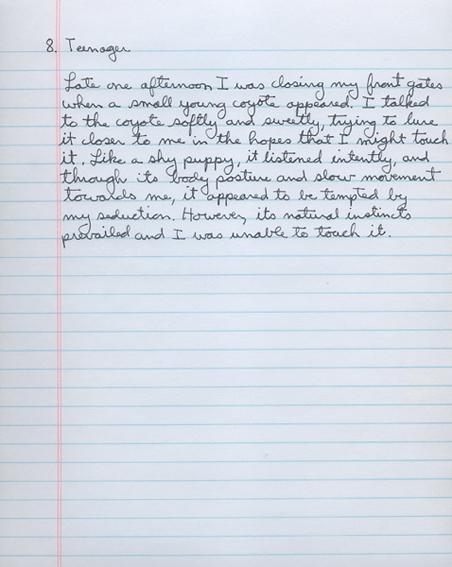 8. Teenager
Late one afternoon I was closing my front gates
when a small young coyote appeared. I talked
to the coyote softly and sweetly, trying to lure
it closer to me in the hopes that I might touch
it. Like a shy puppy, it listened intently, and
through its body posture and slow movement
towards me, it appeared to be tempted by
my seduction. However, its natural instincts
prevailed and I was unable to touch it.